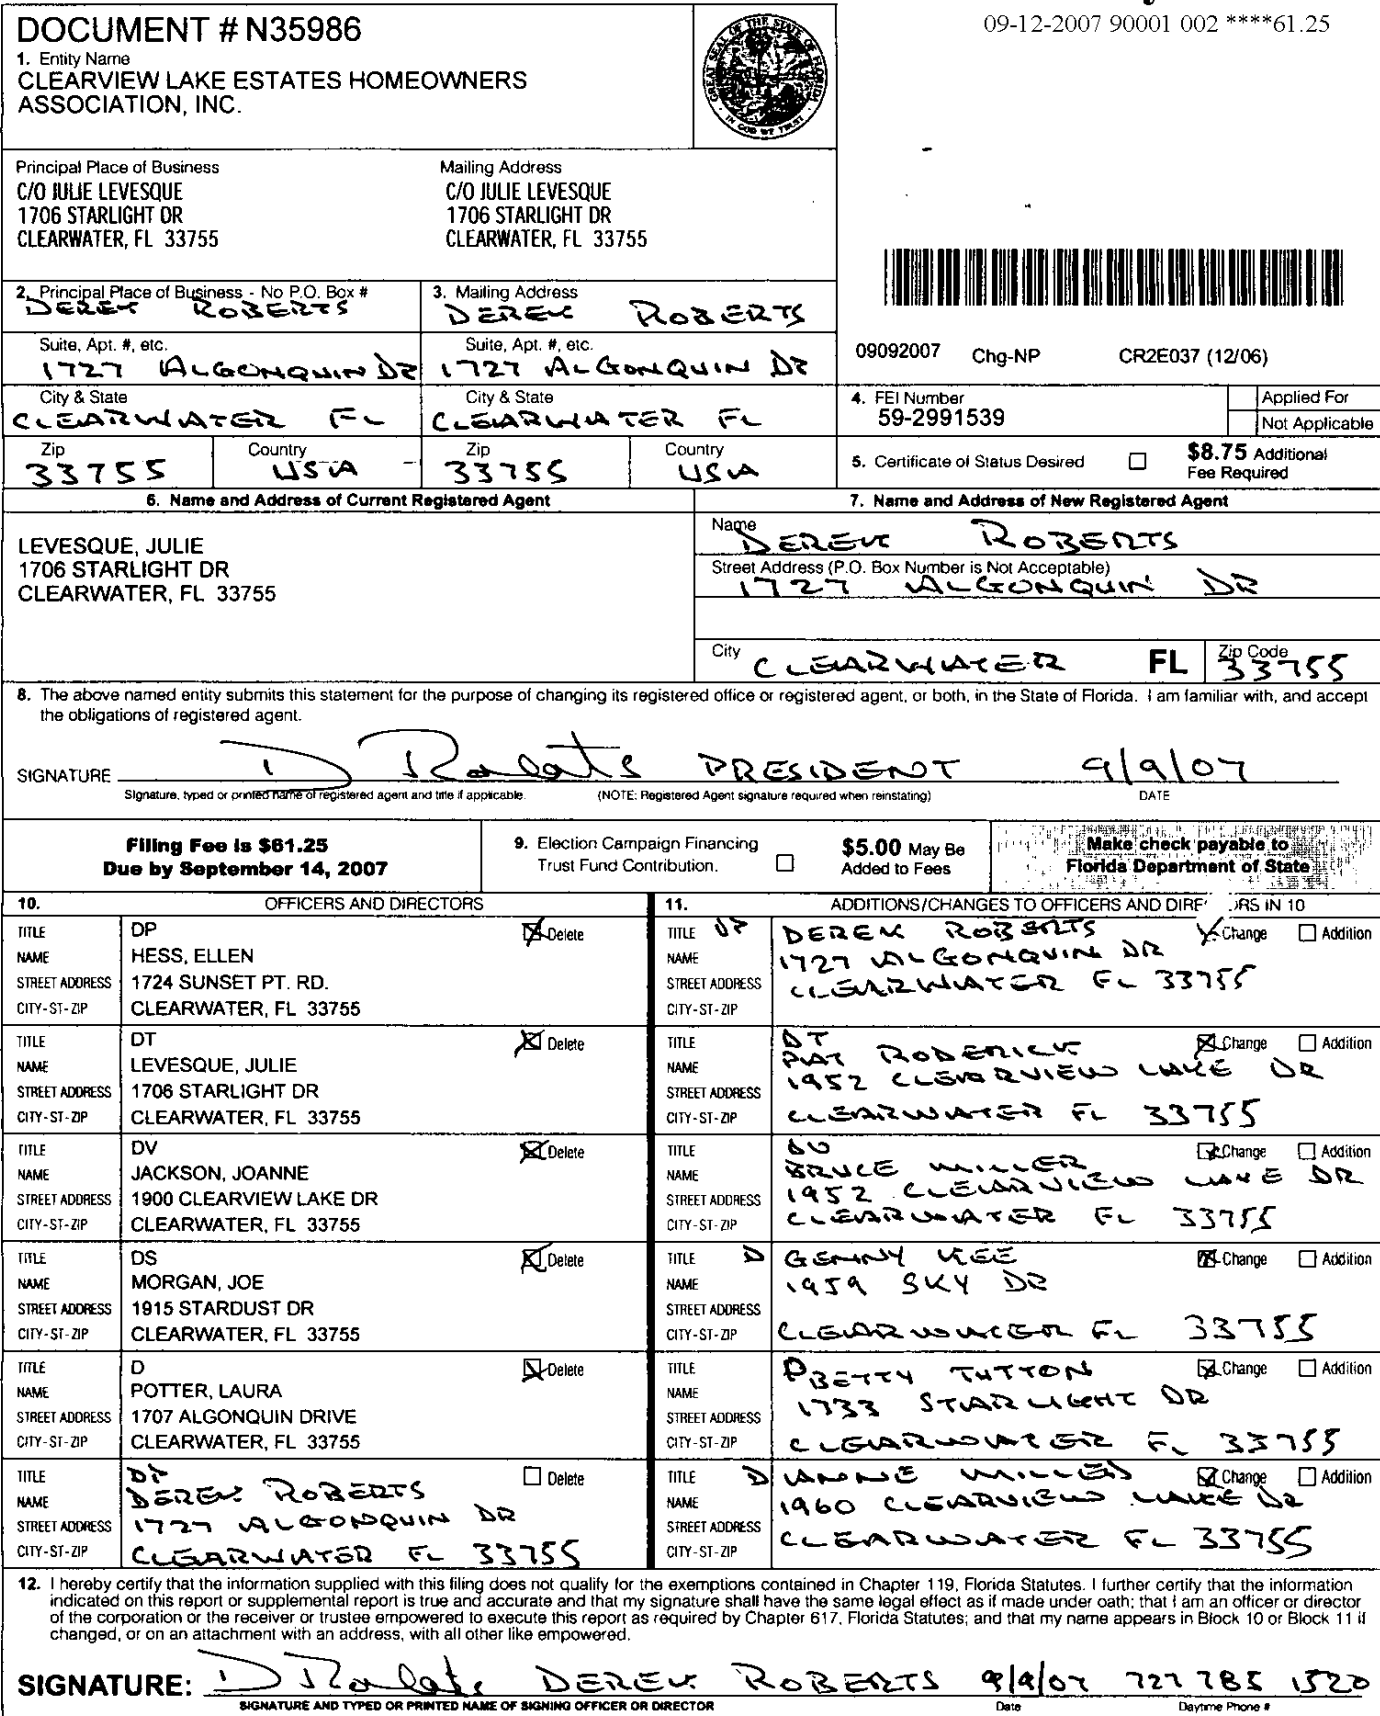 09-12-2007 90001 002 ****61.25
DOCUMENT # N35986
1. Entity Name
CLEARVIEW LAKE ESTATES HOMEOWNERS
ASSOCIATION, INC.
GREAT SEAL OF THE STATE OF FLORIDA
IN GOD WE TRUST
Principal Place of Business
C/O JULIE LEVESQUE
1706 STARLIGHT DR
CLEARWATER, FL 33755
Mailing Address
C/O JULIE LEVESQUE
1706 STARLIGHT DR
CLEARWATER, FL 33755
2. Principal Place of Business - No P.O. Box #
DEREK ROBERTS
3. Mailing Address
DEREK ROBERTS
Suite, Apt. #, etc.
1727 ALGONQUIN DR
Suite, Apt. #, etc.
1727 ALGONQUIN DR
City & State
CLEARWATER FL
City & State
CLEARWATER FL
Zip
33755
Country
USA
Zip
33755
Country
USA
09092007 Chg-NP CR2E037 (12/06)
4. FEI Number
59-2991539
Applied For
Not Applicable
5. Certificate of Status Desired
$8.75 Additional
Fee Required
6. Name and Address of Current Registered Agent
LEVESQUE, JULIE
1706 STARLIGHT DR
CLEARWATER, FL 33755
7. Name and Address of New Registered Agent
Name
DEREK ROBERTS
Street Address (P.O. Box Number is Not Acceptable)
1727 ALGONQUIN DR
City CLEARWATER FL Zip Code 33755
8. The above named entity submits this statement for the purpose of changing its registered office or registered agent, or both, in the State of Florida. I am familiar with, and accept
the obligations of registered agent.
SIGNATURE D Roberts PRESIDENT 9/9/07
Signature, typed or printed name of registered agent and title if applicable. (NOTE: Registered Agent signature required when reinstating) DATE
Filing Fee is $61.25
Due by September 14, 2007
9. Election Campaign Financing
Trust Fund Contribution.
$5.00 May Be
Added to Fees
Make check payable to
Florida Department of State
10. OFFICERS AND DIRECTORS
TITLE DP Delete
NAME HESS, ELLEN
STREET ADDRESS 1724 SUNSET PT. RD.
CITY-ST-ZIP CLEARWATER, FL 33755
TITLE DT Delete
NAME LEVESQUE, JULIE
STREET ADDRESS 1706 STARLIGHT DR
CITY-ST-ZIP CLEARWATER, FL 33755
TITLE DV Delete
NAME JACKSON, JOANNE
STREET ADDRESS 1900 CLEARVIEW LAKE DR
CITY-ST-ZIP CLEARWATER, FL 33755
TITLE DS Delete
NAME MORGAN, JOE
STREET ADDRESS 1915 STARDUST DR
CITY-ST-ZIP CLEARWATER, FL 33755
TITLE D Delete
NAME POTTER, LAURA
STREET ADDRESS 1707 ALGONQUIN DRIVE
CITY-ST-ZIP CLEARWATER, FL 33755
TITLE DP Delete
NAME DEREK ROBERTS
STREET ADDRESS 1727 ALGONQUIN DR
CITY-ST-ZIP CLEARWATER FL 33755
11. ADDITIONS/CHANGES TO OFFICERS AND DIRECTORS IN 10
TITLE DP DEREK ROBERTS Change Addition
NAME 1727 ALGONQUIN DR
STREET ADDRESS CLEARWATER FL 33755
CITY-ST-ZIP
TITLE DT Change Addition
NAME PAT RODERICK
STREET ADDRESS 1952 CLEARVIEW LAKE DR
CITY-ST-ZIP CLEARWATER FL 33755
TITLE DV Change Addition
NAME BRUCE MILLER
STREET ADDRESS 1952 CLEARVIEW LAKE DR
CITY-ST-ZIP CLEARWATER FL 33755
TITLE D GENNY KEE Change Addition
NAME 1959 SKY DR
STREET ADDRESS
CITY-ST-ZIP CLEARWATER FL 33755
TITLE D BETTY TUTTON Change Addition
NAME 1733 STARLIGHT DR
STREET ADDRESS
CITY-ST-ZIP CLEARWATER FL 33755
TITLE DIANNE MILLER Change Addition
NAME 1960 CLEARVIEW LAKE DR
STREET ADDRESS CLEARWATER FL 33755
CITY-ST-ZIP
12. I hereby certify that the information supplied with this filing does not qualify for the exemptions contained in Chapter 119, Florida Statutes. I further certify that the information
indicated on this report or supplemental report is true and accurate and that my signature shall have the same legal effect as if made under oath; that I am an officer or director
of the corporation or the receiver or trustee empowered to execute this report as required by Chapter 617, Florida Statutes; and that my name appears in Block 10 or Block 11 if
changed, or on an attachment with an address, with all other like empowered.
SIGNATURE: D Roberts DEREK ROBERTS 9/9/07 727 785 1520
SIGNATURE AND TYPED OR PRINTED NAME OF SIGNING OFFICER OR DIRECTOR Date Daytime Phone #